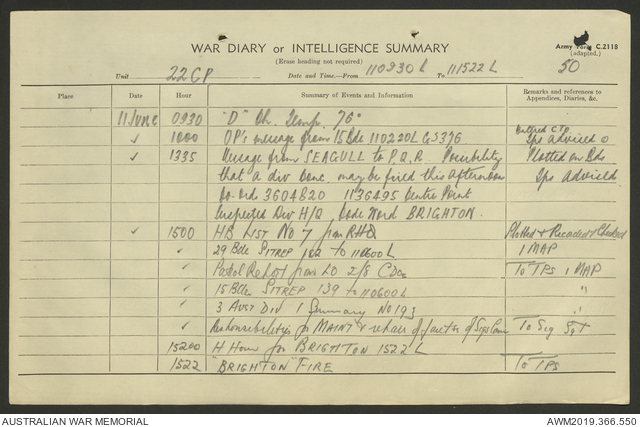 WAR DIARY or INTELLIGENCE SUMMARY
Army Form C.2118
(adapted.)
(Erase heading not required)
50
Unit 22 CP Date and Time.—From 110930L To 111522L
Place Date Hour Summary of Events and Information Remarks and references to Appendices, Diaries, &c.
11 June 0930 "D" Temp. 76°
✓ 1000 OP's message from 15 Bde 110220L G5376 Tps advised
✓ 1335 Message from SEAGULL to P.Q.R. Possibility Plotted on Bds
that a div conc. may be fired this afternoon Tps advised
Co-ord 3604820 1136495 Centre Point
Suspected Div H/Q Code Word BRIGHTON.
✓ 1500 HB LIST No 7 from RHQ Plotted & Recorded & Checked
29 Bde SITREP 182 to 110600L 1 MAP
Patrol Report from LO 2/8 CDO To TPS 1 MAP
15 Bde SITREP 139 to 110600L "
3 Aust Div 1 Summary No 193 "
Responsibilities for MAINT & repair of To Sig Sgt
15200 H Hour for BRIGHTON 1522 L
1522 "BRIGHTON" FIRE To TPS
AUSTRALIAN WAR MEMORIAL
AWM2019.366.550